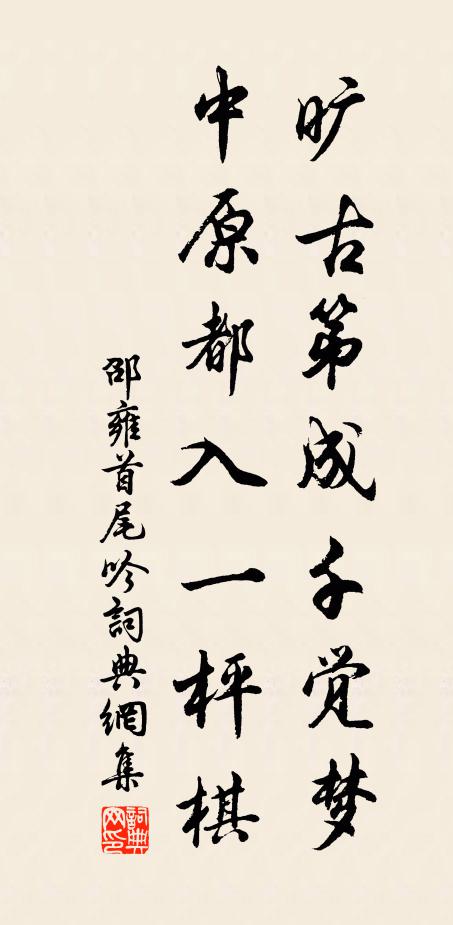 旷古第成千觉梦
中原都入一枰棋
邵雍首尾吟詞典網集
詞典网印